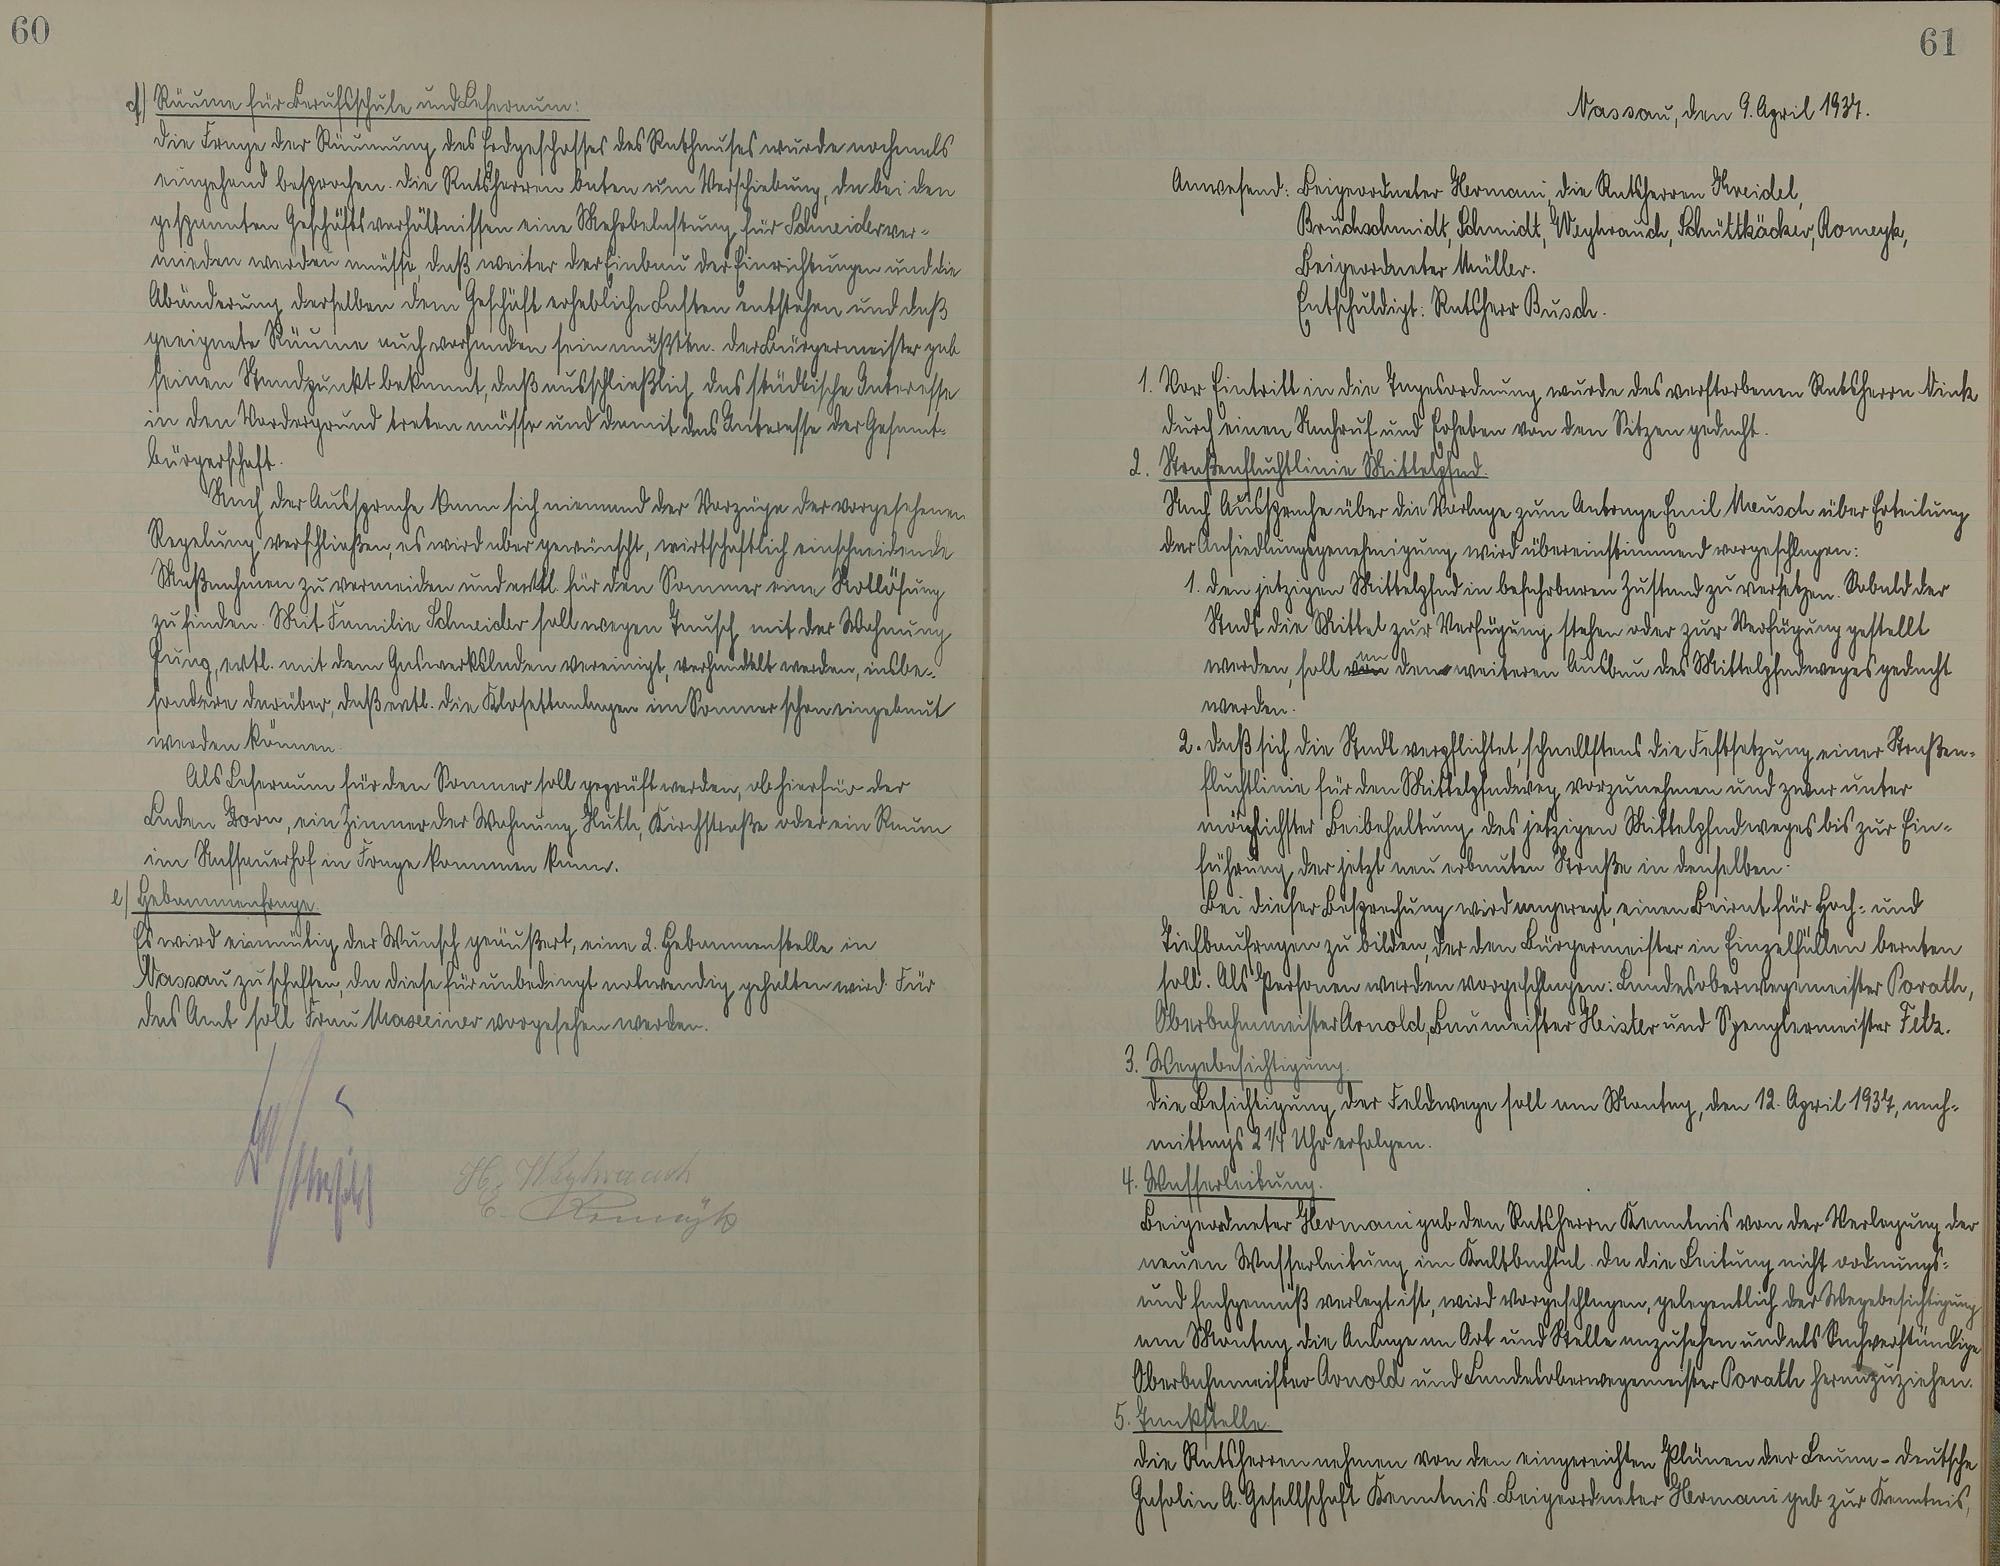 60
d) Räume für Berufsschule und Leseraum:
Die Frage der Räumung des Erdgeschosses des Rathauses wurde nochmals
eingehend besprochen. Die Ratsherren baten um Verschiebung, da bei den
gespannten Geschäftsverhältnissen eine Mehrbelastung für Schneider ver-
mieden werden müsse, daß weiter der Einbau der Einrichtungen und die
Abänderung derselben dem Geschäft erhebliche Lasten entstehen und daß
geeignete Räume auch vorhanden sein müßten. Der Bürgermeister gab
seinen Standpunkt bekannt, daß ausschließlich das städtische Interesse
in den Vordergrund treten müsse und damit das Interesse der Gesamt-
bürgerschaft.
Nach der Aussprache kann sich niemand der Vorzüge der vorgesehenen
Regelung verschließen, es wird aber gewünscht, wirtschaftlich einschneidende
Maßnahmen zu vermeiden und evtl. für den Sommer eine Notlösung
zu finden. Mit Familie Schneider soll wegen Tausch mit der Wohnung
Jung, evtl. mit dem Gaswerksladen vereinigt, verhandelt werden, insbe-
sondere darüber, daß evtl. die Klosettanlagen im Sommer schon eingebaut
werden können.
Als Leseraum für den Sommer soll geprüft werden, ob hierfür der
Laden Born, ein Zimmer der Wohnung Huth, Kirchstraße oder ein Raum
im Nassauerhof in Frage kommen kann.
e) Hebammenfrage.
Es wird einmütig der Wunsch geäußert, eine 2. Hebammenstelle in
Nassau zu schaffen, da diese für unbedingt notwendig gehalten wird. Für
das Amt soll Frau Maxeiner vorgesehen werden.
H. Weyhrauch
E. Romeyk
61
Nassau, den 9. April 1937.
Anwesend: Beigeordneter Hermani, die Ratsherren Kreidel,
Bruchschmidt, Schmidt, Weyhrauch, Schüttkäcker, Romeyk,
Beigeordneter Müller.
Entschuldigt: Ratsherr Busch.
1. Vor Eintritt in die Tagesordnung wurde des verstorbenen Ratsherrn Vink
durch einen Nachruf und Erheben von den Sitzen gedacht.
2. Straßenfluchtlinie Mittelpfad.
Nach Aussprache über die Vorlage zum Antrage Emil Meusch über Erteilung
der Ansiedlungsgenehmigung wird übereinstimmend vorgeschlagen:
1. den jetzigen Mittelpfad in befahrbaren Zustand zu versetzen. Sobald der
Stadt die Mittel zur Verfügung stehen oder zur Verfügung gestellt
werden, soll an den weiteren Ausbau des Mittelpfadweges gedacht
werden.
2. daß sich die Stadt verpflichtet, schnellstens die Festsetzung einer Straßen-
fluchtlinie für den Mittelpfadweg vorzunehmen und zwar unter
möglichster Beibehaltung des jetzigen Mittelpfadweges bis zur Ein-
führung der jetzt neu erbauten Straße in denselben.
Bei dieser Besprechung wird angeregt, einen Beirat für Hoch- und
Tiefbaufragen zu bilden, der den Bürgermeister in Einzelfällen beraten
soll. Als Personen werden vorgeschlagen: Landesoberwegemeister Porath,
Oberbahnmeister Arnold, Baumeister Heister und Spenglermeister Fetz.
3. Wegebesichtigung.
Die Besichtigung der Feldwege soll am Montag, den 12. April 1937, nach-
mittags 2 1/4 Uhr erfolgen.
4. Wasserleitung.
Beigeordneter Hermani gab den Ratsherrn Kenntnis von der Verlegung der
neuen Wasserleitung im Kaltbachtal. Da die Leitung nicht ordnungs-
und fachgemäß verlegt ist, wird vorgeschlagen, gelegentlich der Wegebesichtigung
am Montag die Anlage an Ort und Stelle anzusehen und als Sachverständige
Oberbahnmeister Arnold und Landesoberwegemeister Porath heranzuziehen.
5. Tankstelle.
Die Ratsherren nehmen von den eingereichten Plänen der Leuna-Deutsche
Gasolin A. Gesellschaft Kenntnis. Beigeordneter Hermani gab zur Kenntnis,